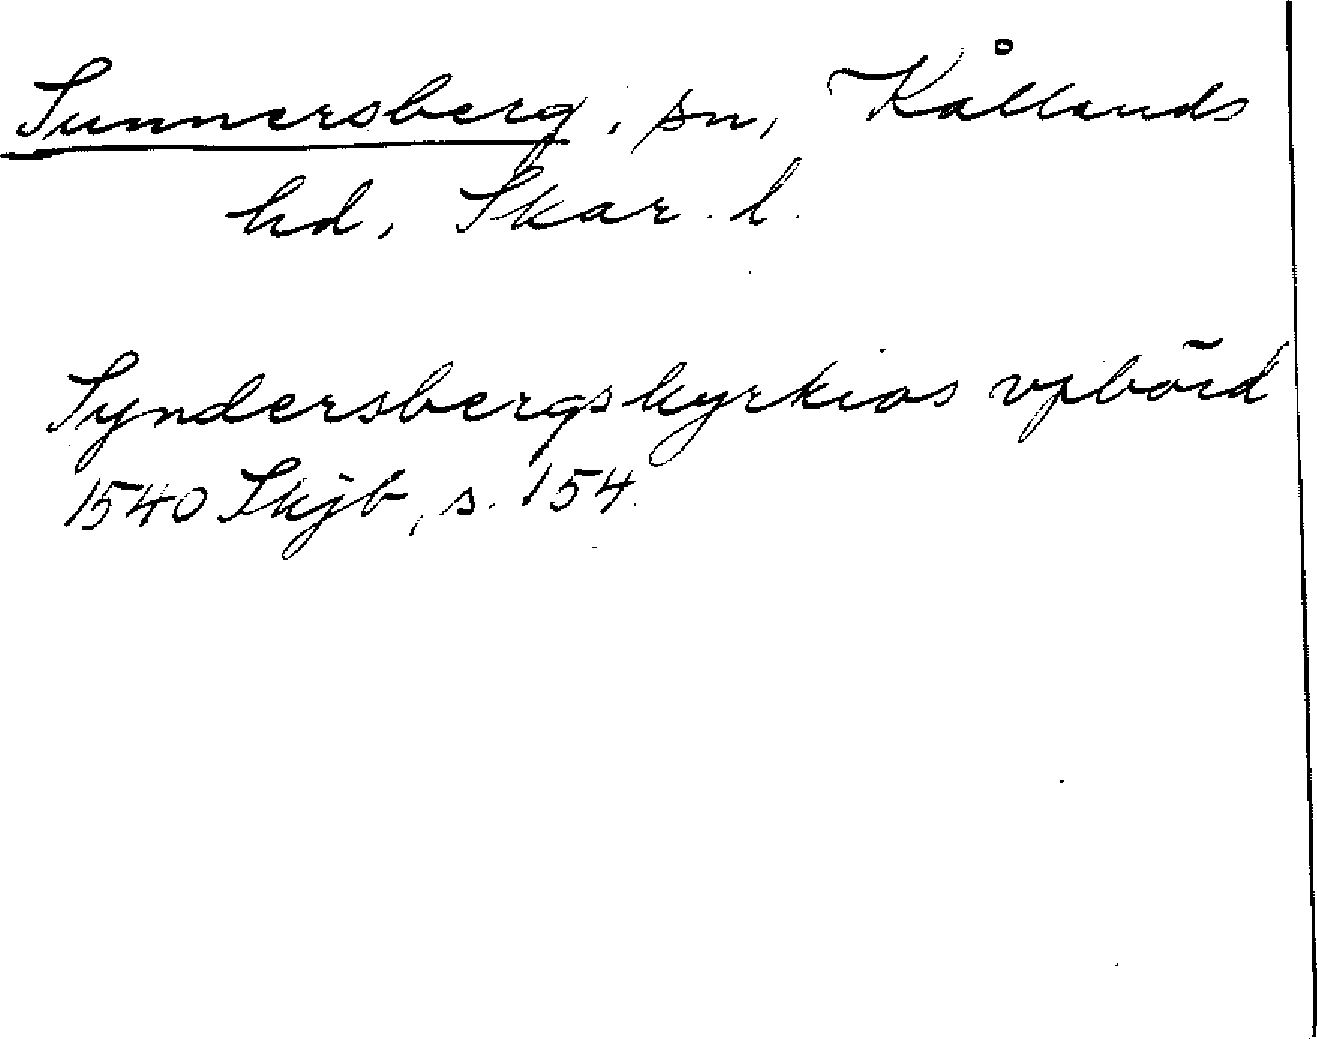 Sunnersberg, sn, Kållands
hd, Skar. l.
Syndersbergs kyrkios vpbörd
1540 Skjb, s. 154.